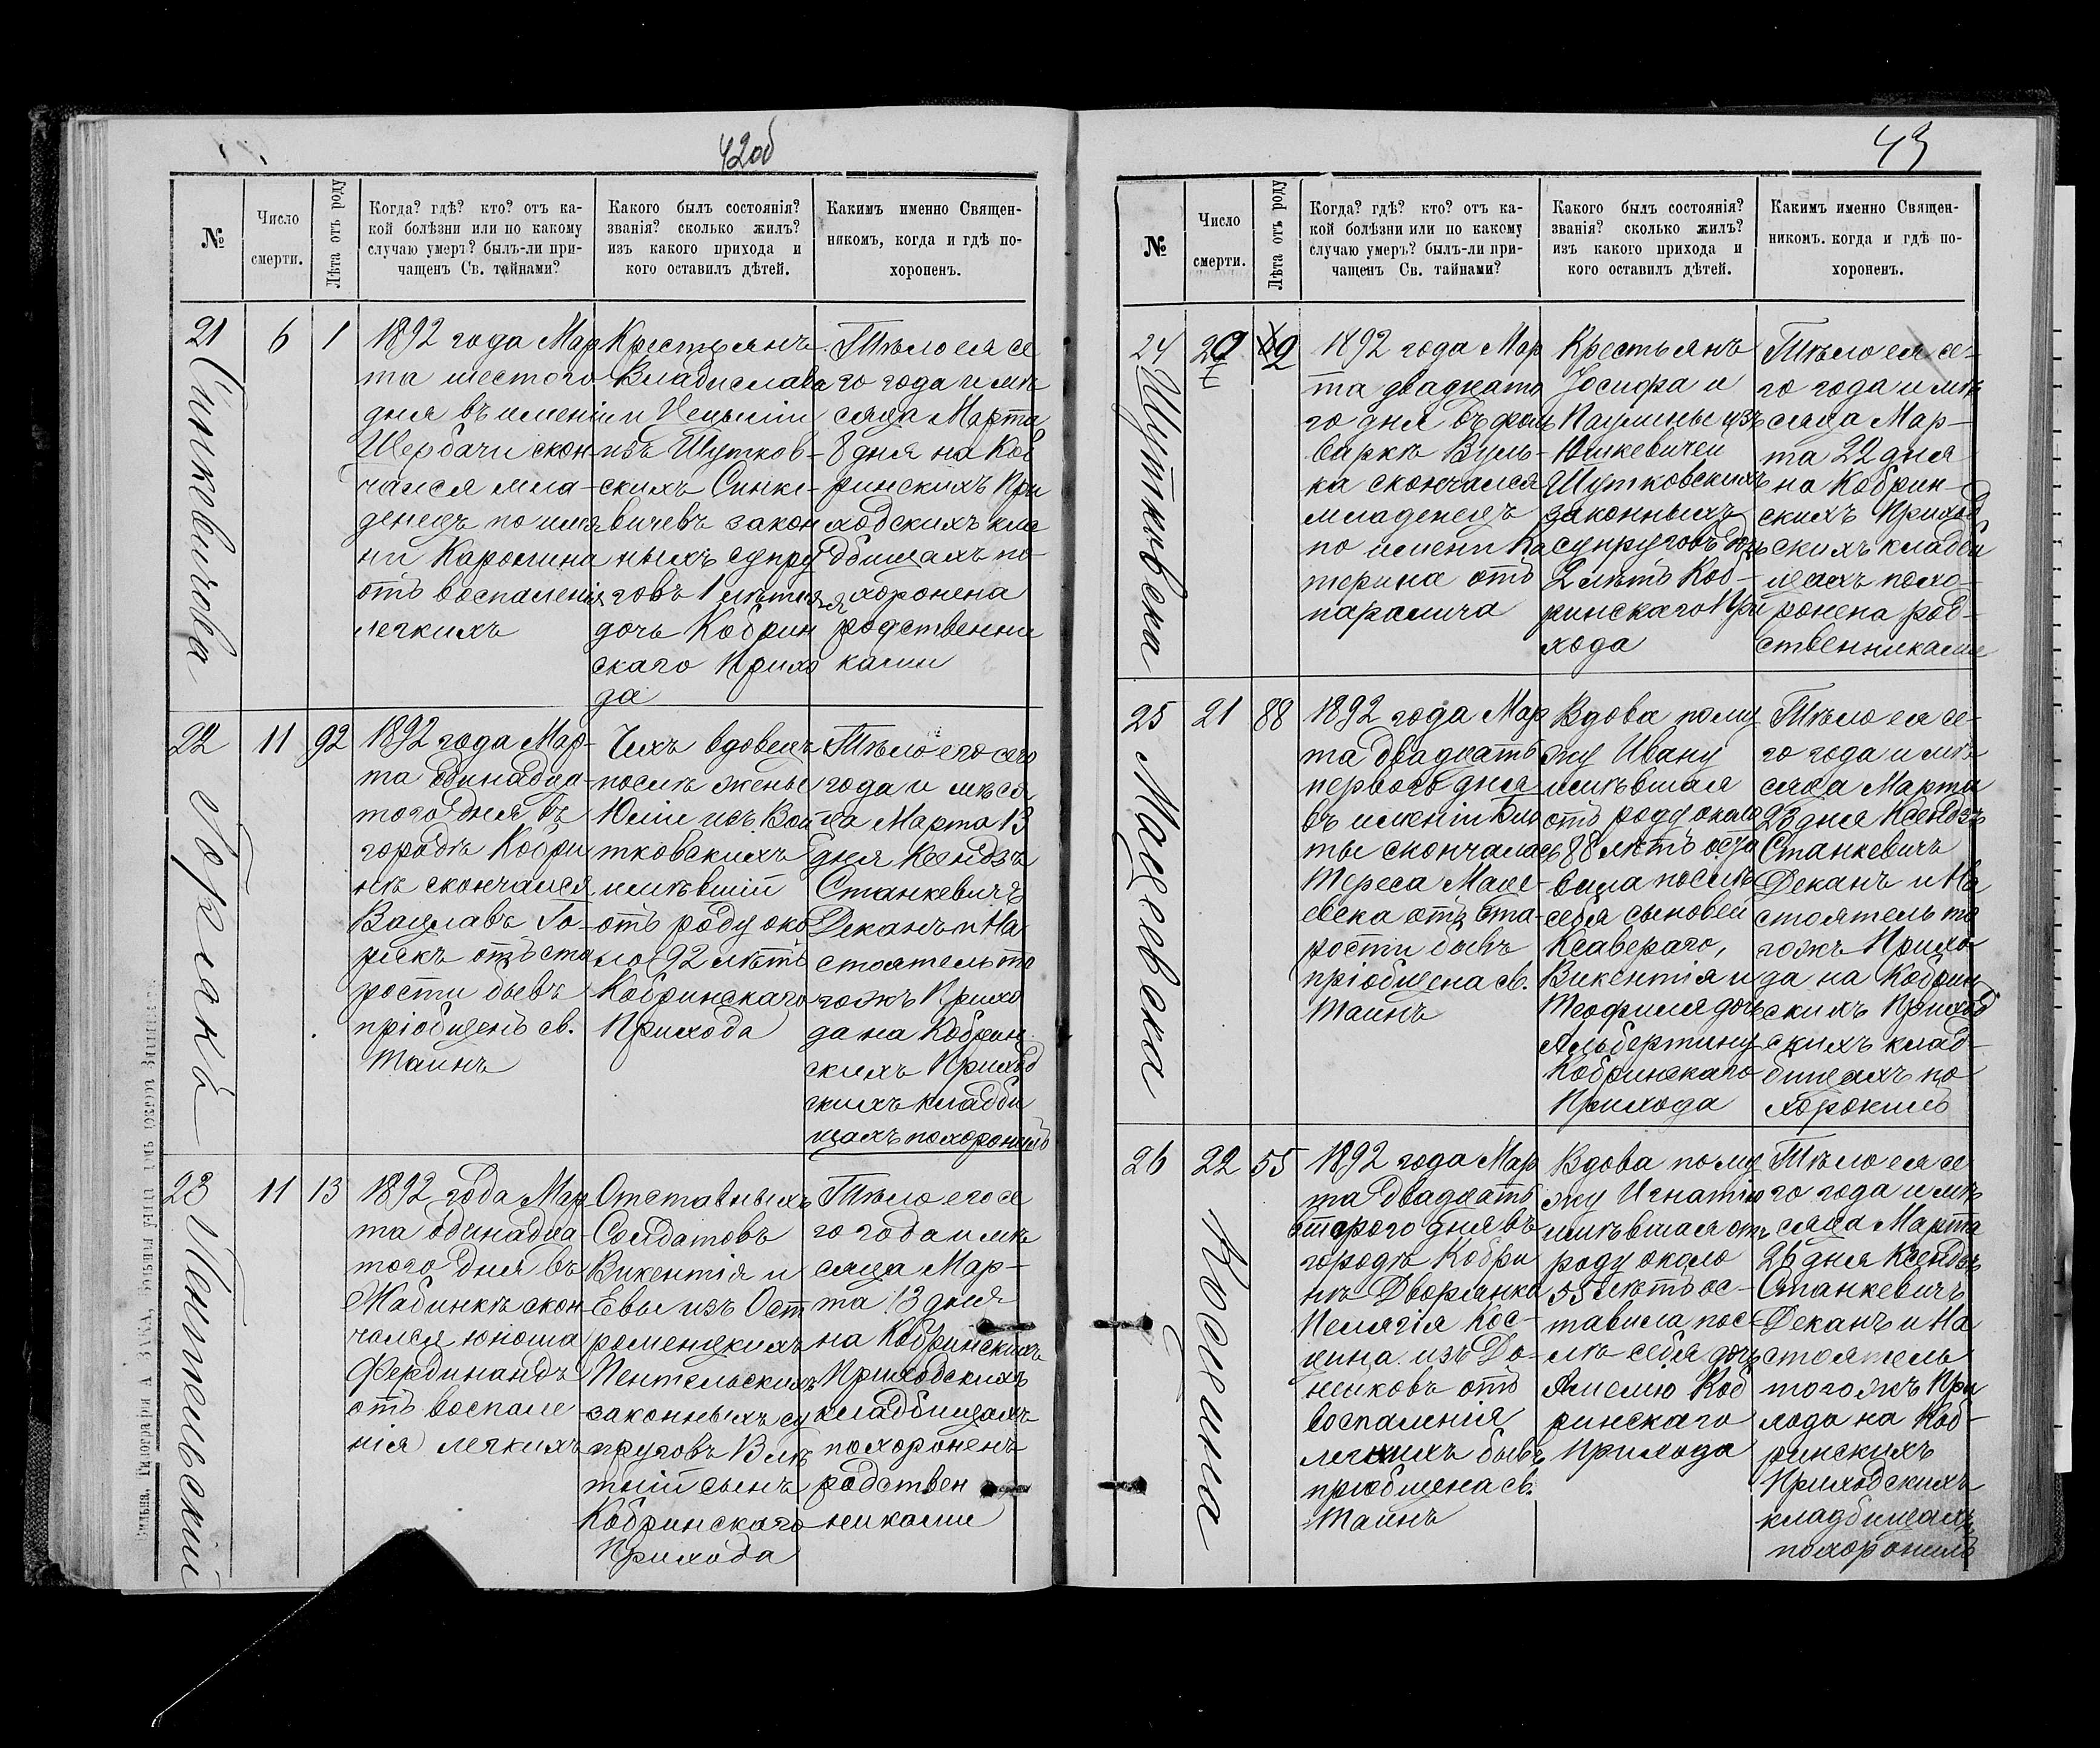 42об
№
Число
смерти.
Лѣта отъ роду
Когда? гдѣ? кто? отъ ка-
кой болѣзни или по какому
случаю умеръ? былъ-ли при-
чащенъ Св. тайнами?
Какого былъ состоянія?
званія? сколько жилъ?
изъ какого прихода и
кого оставилъ дѣтей.
Какимъ именно Священ-
никомъ, когда и гдѣ по-
хороненъ.
21
Синкевичова
6
1
1892 года Мар
та шестого
дня въ имѣніи
Щербачи скон
чался мла-
денецъ по име
ни Каролина
отъ воспаленія
легкихъ
Крестьянъ
Владислава
и Цецыліи
изъ Шутков-
скихъ Синке-
вичевъ закон
ныхъ супру
говъ 1 лѣтняя
дочь Кобрин
скаго Прихо
да
Тѣло ея се
го года и мѣ
сяца Марта
8 дня на Коб
ринскихъ При
ходскихъ кла
дбищахъ по-
хоронена
родственни
ками
22
Горякъ
11
92
1892 года Мар-
та одинадца-
того дня въ
городѣ Кобри
нѣ скончался
Вацлавъ Го-
рякъ отъ ста
рости бывъ
пріобщенъ св.
Таинъ
вдовецъ
послѣ жены
Юліи изъ Вой
тковскихъ
имѣвшій
отъ роду око
ло 92 лѣтъ
Кобринскаго
Прихода
Тѣло его сего
года и мѣся
ца Марта 13
дня Ксендзъ
Станкевичъ
Деканъ и На
стоятель то
гожъ Прихо
да на Кобрин
скихъ Приход
скихъ кладби
щахъ похоронилъ
23
Пентельскій
11
13
1892 года Мар
та одинадца-
того дня въ
Жабинкѣ скон
чался юноша
Фердинандъ
отъ воспале
нія легкихъ
Отставныхъ
Солдатовъ
Викентія и
Евы изъ Ост
роменцкихъ
Пентельскихъ
законныхъ су
пруговъ
тній сынъ
Кобринскаго
Прихода
Тѣло его се
го года и мѣ
сяца Мар-
та 13 дня
на Кобринскихъ
Приходскихъ
кладбищахъ
похороненъ
родствен
никами
Вильна, Типографія А.
43
№
Число
смерти.
Лѣта отъ роду
Когда? гдѣ? кто? отъ ка-
кой болѣзни или по какому
случаю умеръ? былъ-ли при-
чащенъ Св. тайнами?
Какого былъ состоянія?
званія? сколько жилъ?
изъ какого прихода и
кого оставилъ дѣтей.
Какимъ именно Священ-
никомъ. когда и гдѣ по-
хороненъ.
24
Шутковска
20
2
1892 года Мар
та двадцата
го дня въ фоль
варкѣ Вуль-
ка скончался
младенецъ
по имени Ка
терина отъ
паралича
Крестьянъ
Іосифа и
Паулины изъ
Юшкевичей
Шутковскихъ
законныхъ
супруговъ дочь
2 лѣтъ Коб-
ринскаго При
хода
Тѣло ея се-
го года и мѣ
сяца Мар-
та 22 дня
на Кобрин-
скихъ Приход
скихъ кладби
щахъ похо-
ронена род-
ственниками
25
Мацеевска
21
88
1892 года Мар
та двадцать
первого дня
въ имѣніи
ты скончалась
Тереса Маце-
евска отъ ста-
рости бывъ
пріобщена св.
Таинъ
Вдова по му
жу Ивану
имѣвшая
отъ роду около
88 лѣтъ оста
вила послѣ
себя сыновей
Ксавераго,
Викентія и
Теофиля дочь
Альбертину
Кобринскаго
Прихода
Тѣло ея се-
го года и мѣ-
сяца Марта
23 дня Ксендзъ
Станкевичъ
Деканъ и На
стоятель то
гожъ Прихо
да на Кобрин
скихъ Приход
скихъ клад-
бищахъ по-
хоронилъ
26
Косцина
22
55
1892 года Мар
та двадцать
второго дня въ
городѣ Кобри
нѣ Дворянка
Пелягія Кос-
цина изъ До-
нейковъ отъ
воспаленія
легкихъ бывъ
пріобщена св.
Таинъ
Вдова по му
жу Игнатію
имѣвшая отъ
роду около
55 лѣтъ ос-
тавила пос-
лѣ себя дочь
Амелю Коб
ринскаго
Прихода
Тѣло ея се
го года и мѣ
сяца Марта
26 дня Ксендзъ
Станкевичъ
Деканъ и На
стоятель
тогожъ При
хода на Коб-
ринскихъ
Приходскихъ
кладбищахъ
похоронилъ